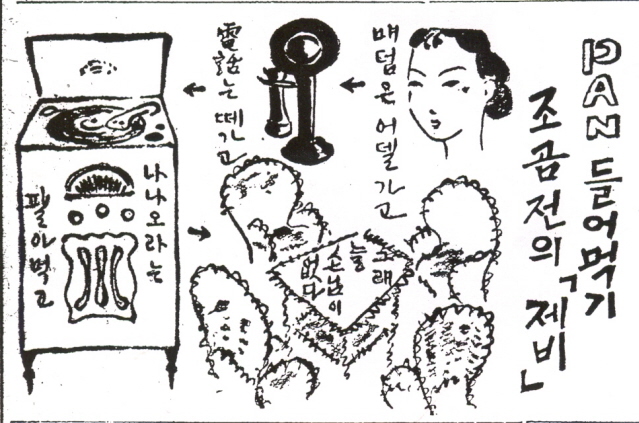 PAN 들어먹기
조곰전의 「제비」
매덤은 어델가고
電話는 떼가고
나나오라는
팔아먹고
그래
늘
손님이
없다